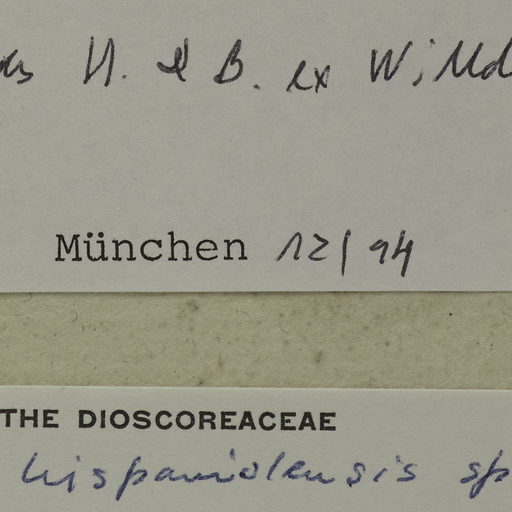 H. & B. ex Willd
München 12/94
THE DIOSCOREACEAE
hispaniolensis sp